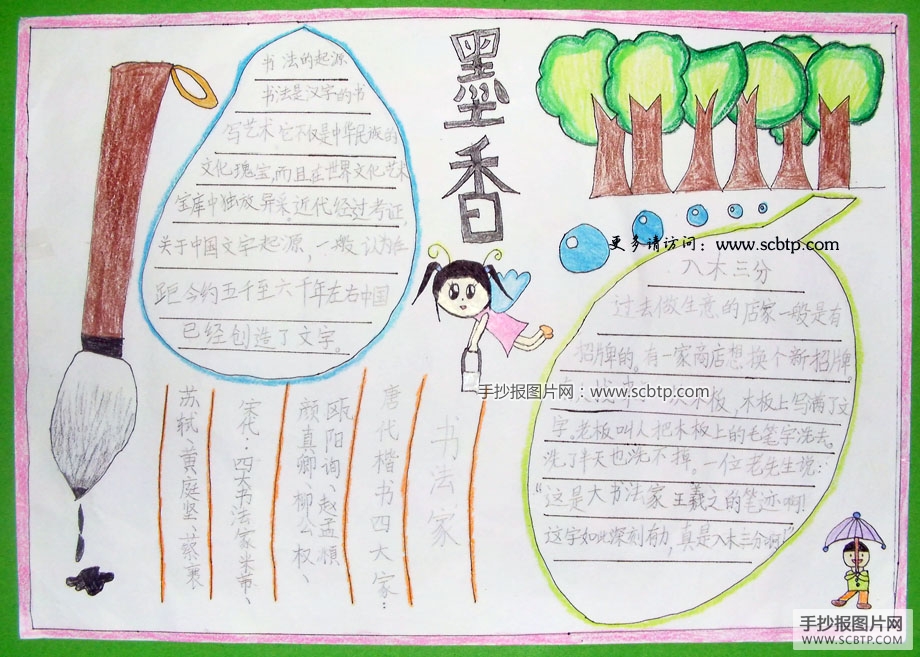 墨香
书法的起源
书法是汉字的书
写艺术它不仅是中华民族的
文化瑰宝,而且在世界文化艺术
宝库中独放异采。近代经过考证,
关于中国文字起源,一般认为在
距今约五千至六千年左右中国
已经创造了文字。
更多请访问:www.scbtp.com
入木三分
过去做生意的店家一般是有
招牌的。有一家商店想换个新招牌
木板,木板上写满了文
字。老板叫人把木板上的毛笔字洗去。
洗了半天也洗不掉。一位老先生说:
“这是大书法家王羲之的笔迹啊!
这字如此深刻有力,真是入木三分啊!”
手抄报图片网:www.scbtp.com
书法家
唐代楷书四大家:
欧阳询、赵孟頫
颜真卿、柳公权、
宋代:四大书法家米芾、
苏轼、黄庭坚、蔡襄
手抄报图片网
WWW.SCBTP.COM